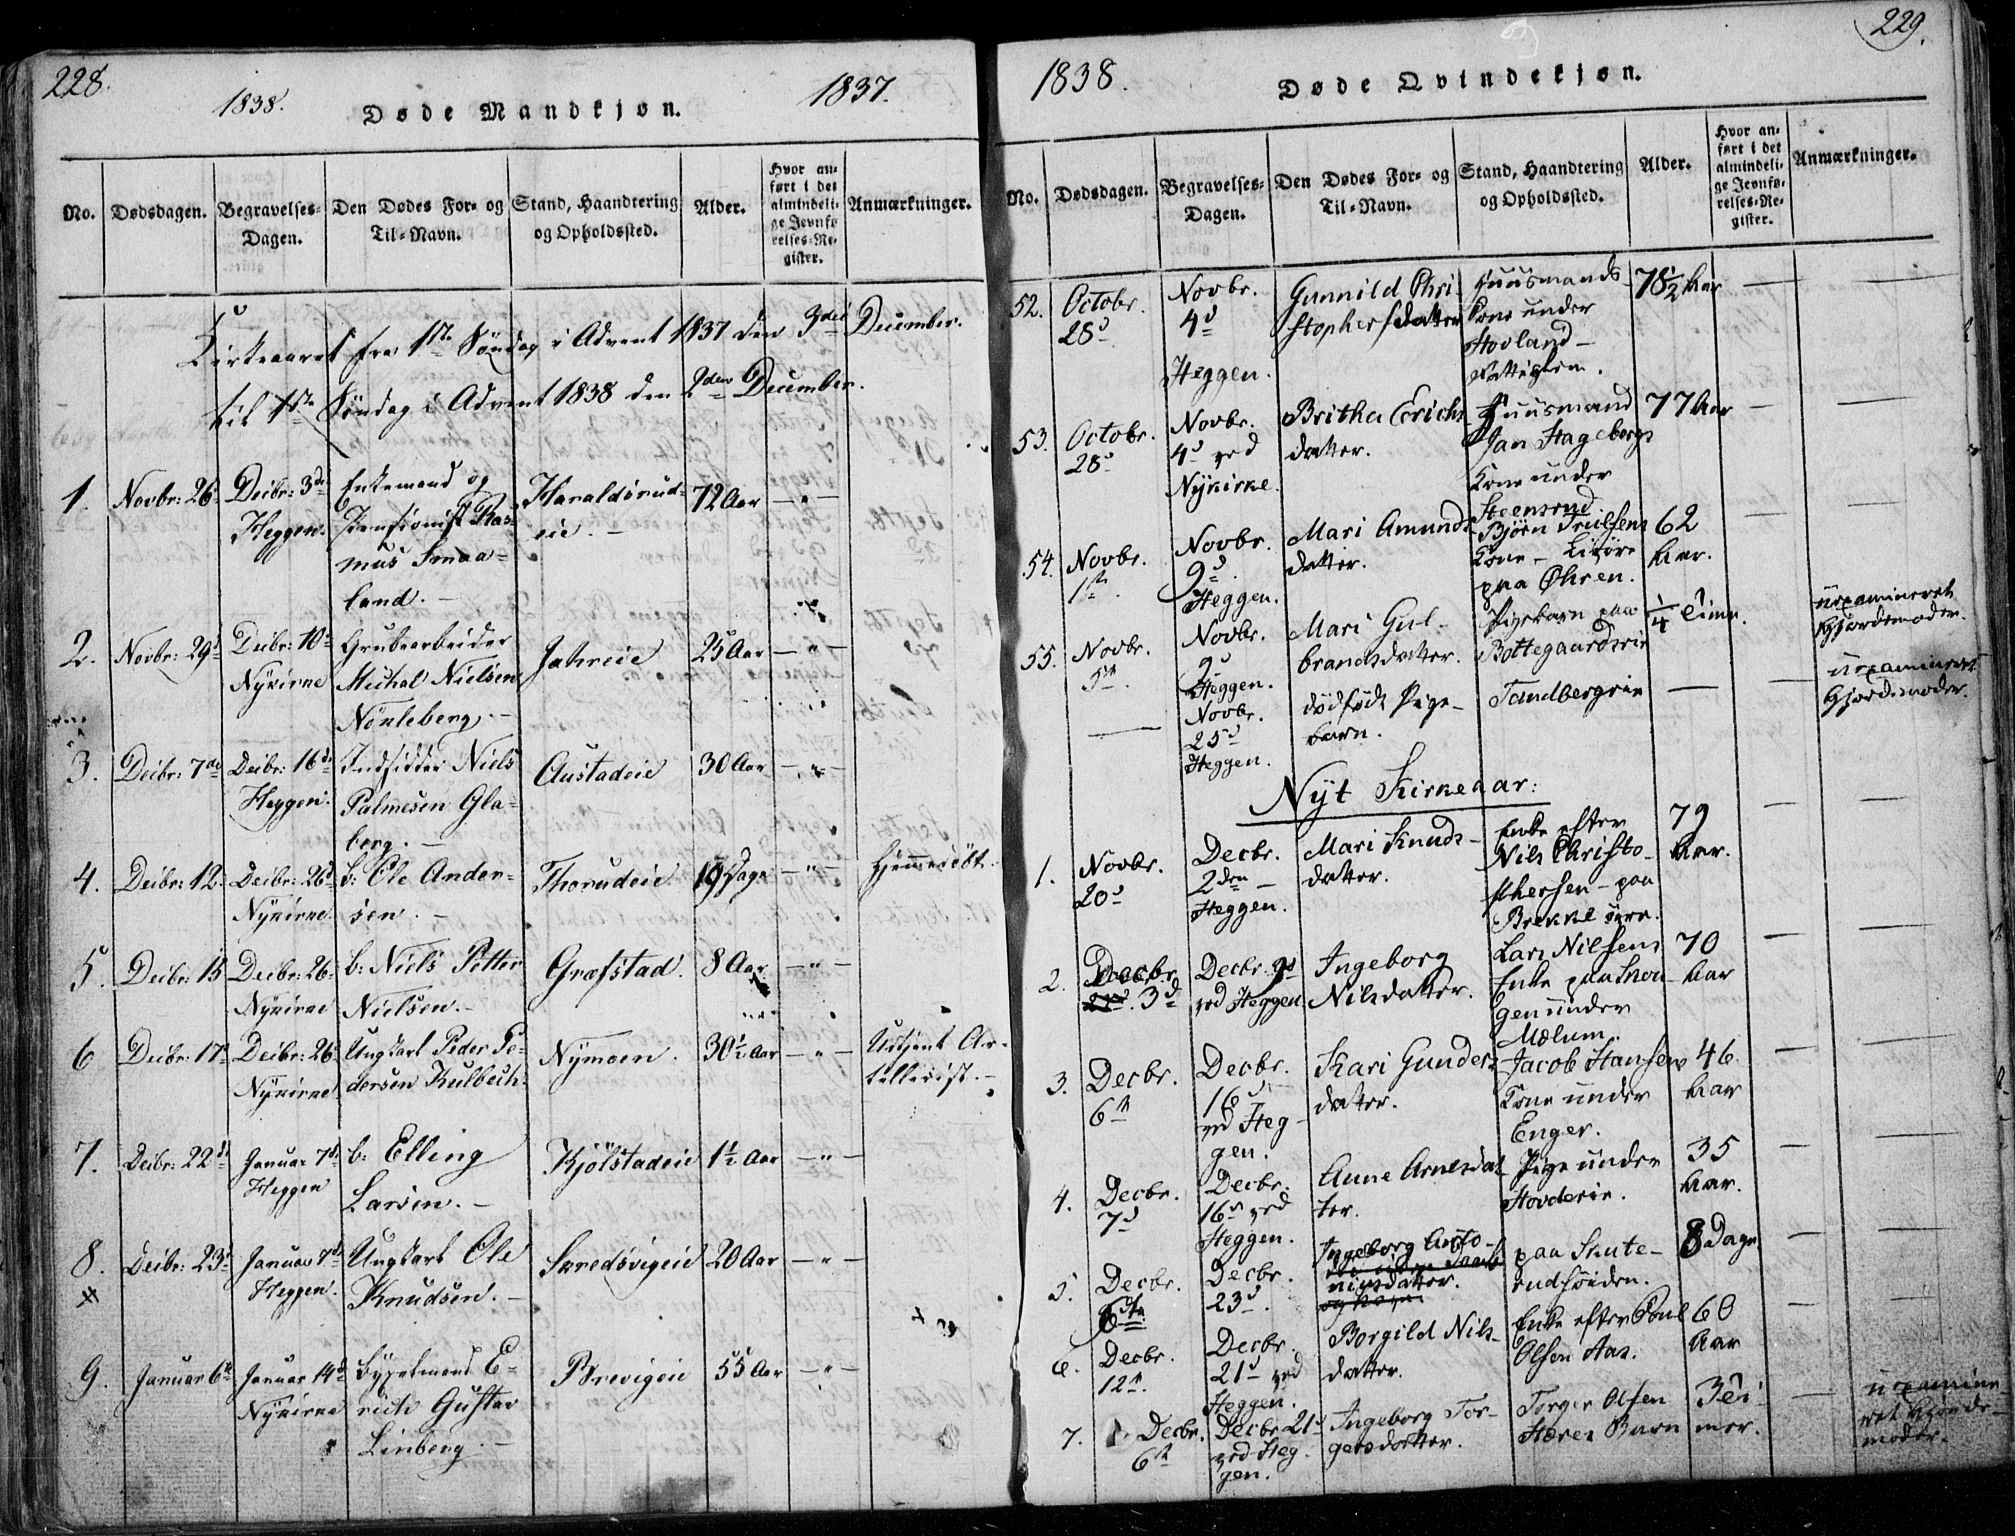 228.
1838.
Døde Mandkjøn.
1837.
No.
Dødsdagen.
Begravelses-
Dagen.
Den Dødes For- og
Til-Navn.
Stand, Haandtering
og Opholdssted.
Alder.
Hvor an-
ført i det
almindeli-
ge Jevnfø-
relses-Re-
gister.
Anmærkninger.
Kirkeaaret fra 1ste Søndag i Advent 1837 den 3die December.
til 1ste Søndag i Advent 1838 den 2den December.
1. Novbr: 26. Decbr: 3die
Heggen.
Enkemand og
Pensionist Ras-
mus Smaa-
land. -
Haraldsrud-
eie. - 72 Aar - " -
2. Novbr: 29d Decbr: 10de
Nykirke
Grubearbeider
Michal Nielsen
Nørleberg. -
Jahreie 25 Aar - " -
3. Decbr: 7de Decbr: 16de
Heggen.
Indsidder Niels
Palmesen Gla-
berg. -
Austadeie 30 Aar - " -
4. Decbr: 12. Decbr: 26d
Nykirke
b: Ole Ander-
sen. -
Thorudeie 19 Dage - " - Hjemmedøbt.
5. Decbr: 15 Decbr: 26.
Nykirke
b: Niels Petter
Nielsen. -
Græfstad. 8 Aar - " -
6 Decbr: 17. Decbr: 26d
Nykirke
Ungkarl Peder Pe-
dersen Kulbech.
Nymoen. 30½ Aar - " - Udtjent Ar-
tillerist. -
7. Decbr: 22d Januar 7d
Heggen
b: Elling
Larsen. -
Kjølstadeie 1½ Aar - " -
8. Decbr: 23d Januar 7d
Heggen.
Ungkarl Ole
Knudsen. -
Snedsvigeie 20 Aar - " -
9. Januar 6te Januar 14d
Nykirke
Huusmand E-
rich Gustav
Linberg. -
Brevigeie 55 Aar - " -
229.
1838.
Døde Qvindekjøn.
No.
Dødsdagen.
Begravelses-
Dagen.
Den Dødes For- og
Til-Navn.
Stand, Haandtering
og Opholdssted.
Alder.
Hvor an-
ført i det
almindeli-
ge Jevnfø-
relses-Re-
gister.
Anmærkninger.
52. Octobr.
28d
Novbr.
4d
Heggen.
Gunnild Chri-
stophersdatter
Huusmands
Kone under
Hovland -
78½ Aar
53. Octobr.
28d
Novbr.
4d ved
Nykirke.
Britha Erichs
datter.
Huusmand
Jan Hagebergs
Kone under
Steensrud
77 Aar
54. Novbr.
1ste
Novbr.
9d
Heggen.
Mari Amunds
datter.
Bjørn Trulsens
Kone -
paa Øhren.
62
Aar.
55. Novbr.
5te
Novbr.
9d
Heggen.
Mari Gul-
brandsdatter.
Pigebarn paa
Bottegaardseie
¼ Time.
uexamineret
Gjordemoder.
Novbr.
25d
Heggen.
dødfødt Pige-
barn.
Tandbergeie
uexamineret
Gjordemoder.
Nyt Kirkeaar:
1. Novbr.
20d
Decbr.
2den -
Heggen.
Mari Knuds-
datter.
Enke efter
Nils Christo-
phersen - paa
Brekke øvre.
79
Aar.
2. Decbr.
3d
Decbr. 9d
ved Heggen
Ingeborg
Nilsdatter.
Lars Nilsens
Enke paa Snou-
gen under
Mælum.
70
Aar
3. Decbr.
6te
Decbr.
16d
ved Heg-
gen.
Kari Gunders
datter.
Jacob Hansens
Kone under
Enger.
46
Aar
4. Decbr.
7d
Decbr.
16d ved
Heggen.
Anne Arnesdat
ter.
Pige under
Hovdeeie.
35
Aar.
5. Decbr.
6te
Decbr.
23d.
Ingeborg Anto-
nisdatter.
paa Skute-
rudseiden.
8 Dage
6. Decbr.
12te.
Decbr.
21d ved
Heggen.
Borgild Nils-
datter.
Enke efter Poul
Olsen Aas.
60
Aar
7. Decbr.
6te
Decbr 21d
ved Heg-
gen.
Ingeborg Tor-
gersdatter.
Torger Olsen
Hæren Barn
3 Ti-
mer.
uexamine-
ret Gjorde-
moder.